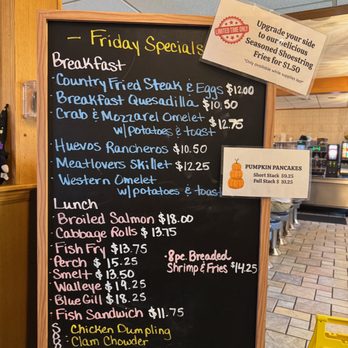 – Friday Specials
Upgrade your side
to our delicious
Seasoned Shoestring
Fries for $1.50
*Only available while supplies last*
LIMITED TIME ONLY
Breakfast
· Country Fried Steak & Eggs $12.00
· Breakfast Quesadilla $10.50
· Crab & Mozzarel Omelet $12.75
w/potatoes & toast
· Huevos Rancheros $10.50
· Meatlovers Skillet $12.25
· Western Omelet
w/potatoes & toast
PUMPKIN PANCAKES
Short Stack $9.25
Full Stack $10.25
Lunch
· Broiled Salmon $18.00
· Cabbage Rolls $13.75
· Fish Fry $13.75
· Perch $15.25
· Smelt $13.50
· Walleye $19.25
· Blue Gill $18.25
· Fish Sandwich $11.75
· 8pc. Breaded
Shrimp & Fries $14.25
S Chicken Dumpling
O Clam Chowder